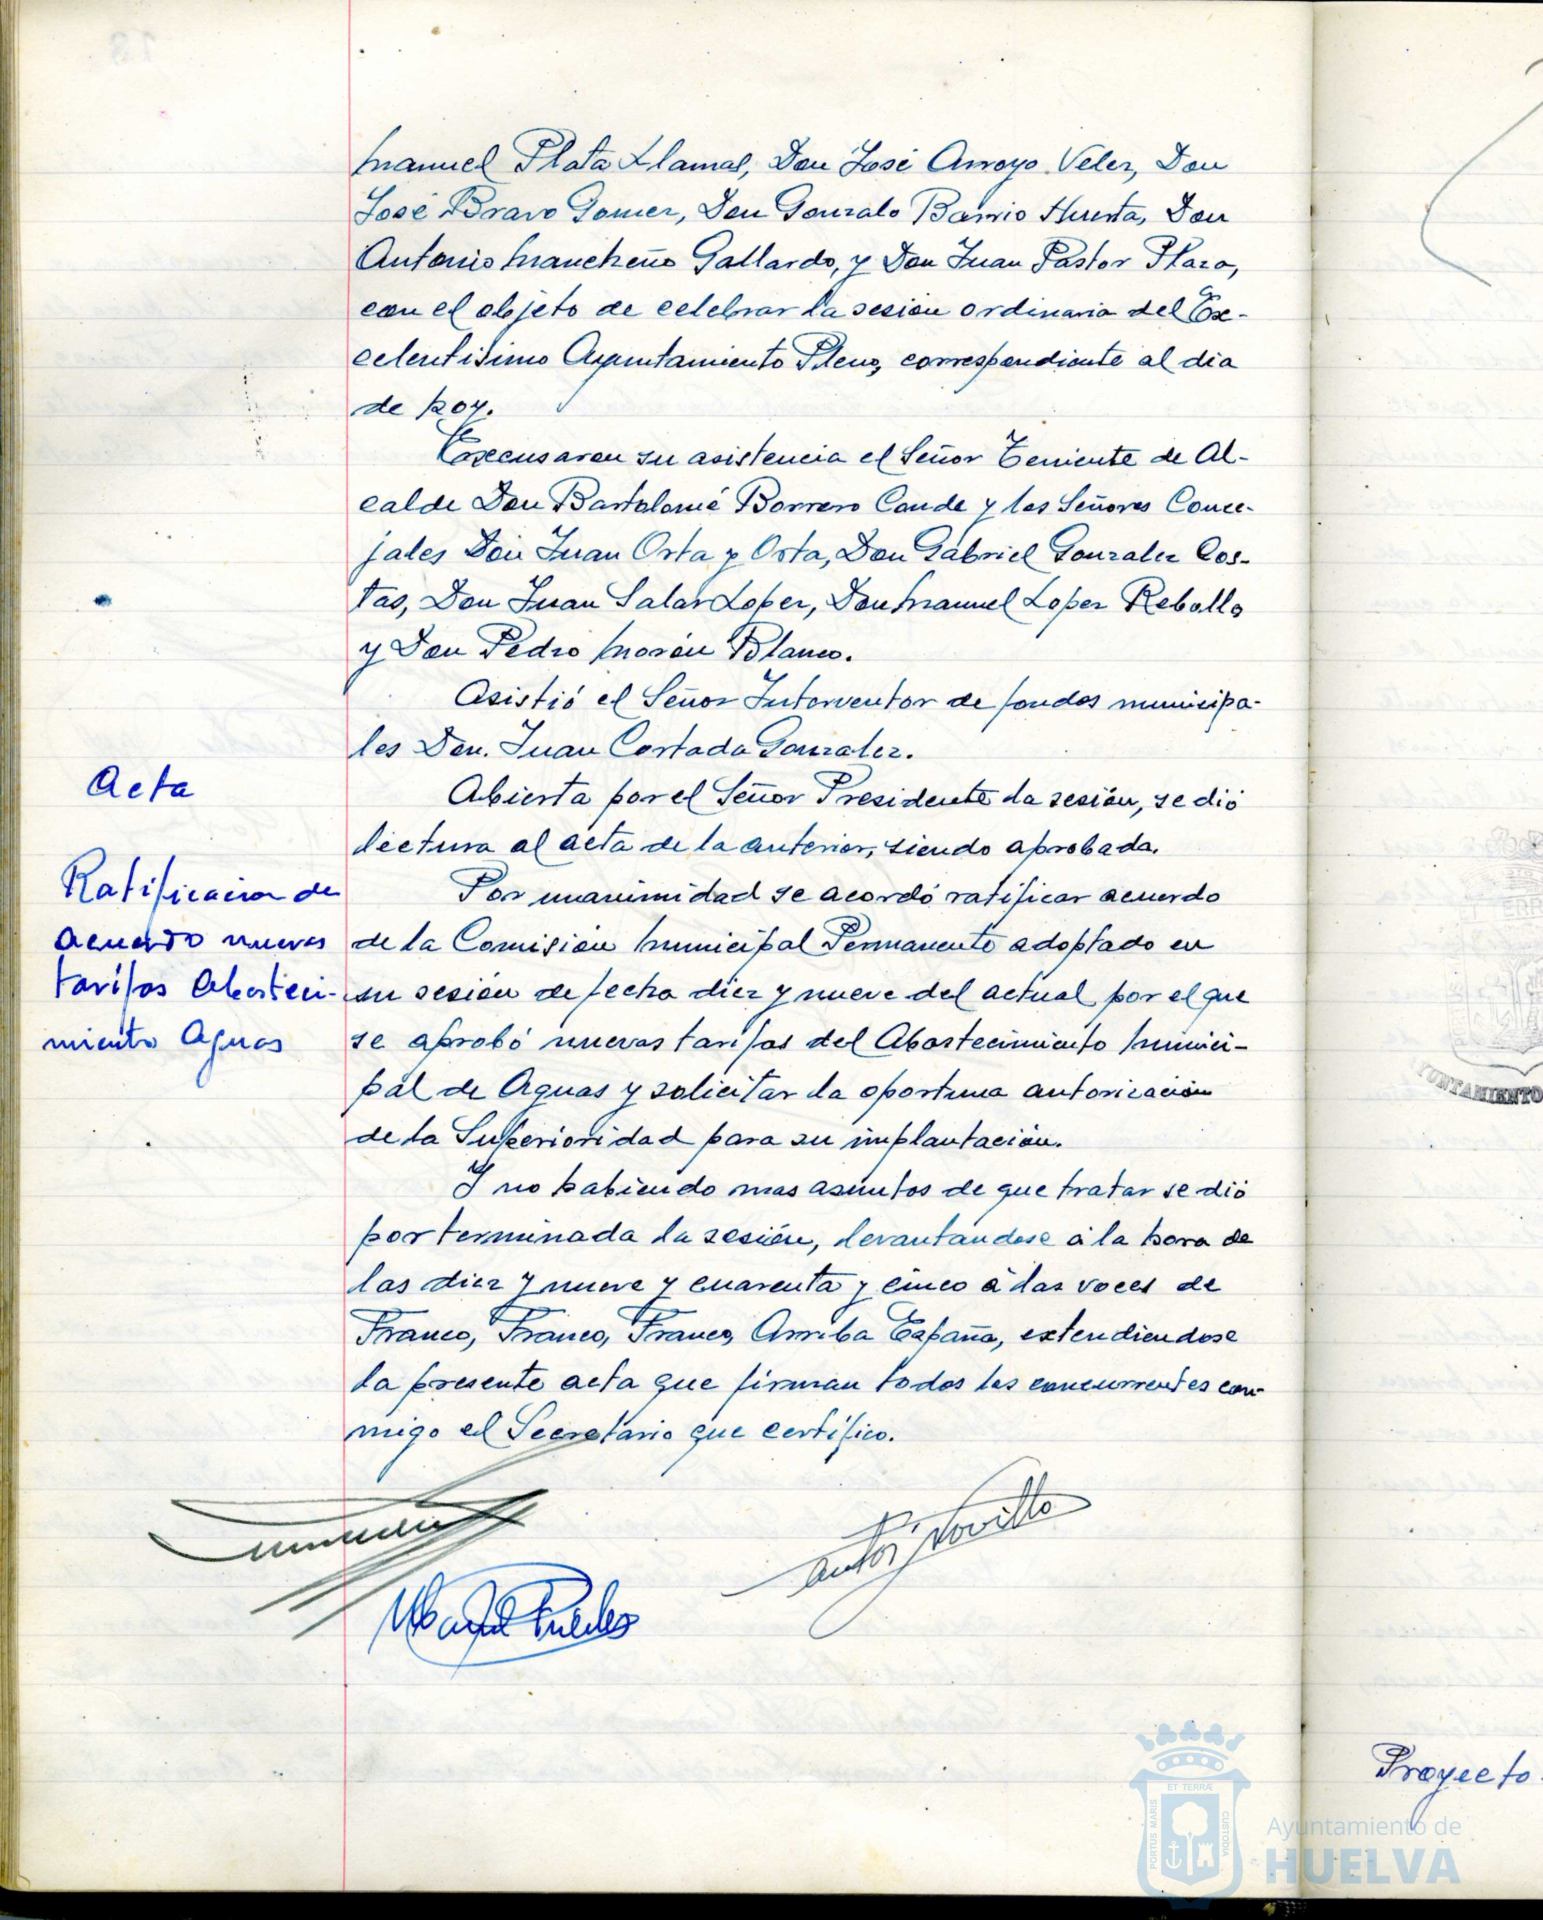 Manuel Plata Llamas, Don José Arroyo Velez, Don
José Bravo Gomez, Don Gonzalo Barrio Huerta, Don
Antonio Mancheño Gallardo, y Don Juan Pastor Plaza,
con el objeto de celebrar la sesión ordinaria del Ex-
celentisimo Ayuntamiento Pleno, correspondiente al dia
de hoy.
Excusaron su asistencia el Señor Teniente de Al-
calde Don Bartolomé Borrero Conde y los Señores Conce-
jales Don Juan Orta y Orta, Don Gabriel Gonzalez Cos-
tas, Don Juan Salas Lopez, Don Manuel Lopez Rebollo
y Don Pedro Morón Blanco.
Asistió el Señor Interventor de fondos municipa-
les Don. Juan Cortada Gonzalez.
Acta
Abierta por el Señor Presidente la sesión, se dió
lectura al acta de la anterior, siendo aprobada.
Ratificacion de
acuerdo nuevas
tarifas Abasteci-
miento Aguas
Por unanimidad se acordó ratificar acuerdo
de la Comisión Municipal Permanente adoptado en
su sesión de fecha diez y nueve del actual por el que
se aprobó nuevas tarifas del Abastecimiento Munici-
pal de Aguas y solicitar la oportuna autorización
de la Superioridad para su implantación.
Y no habiendo mas asuntos de que tratar se dió
por terminada la sesión, levantandose á la hora de
las diez y nueve y cuarenta y cinco á las voces de
Franco, Franco, Franco, Arriba España, extendiendose
la presente acta que firman todos los concurrentes con-
migo el Secretario que certifico.
Proyecto
YUNTAMIENTO
ET TERRÆ
PORTUS MARIS
CUSTODIA
Ayuntamiento de
HUELVA